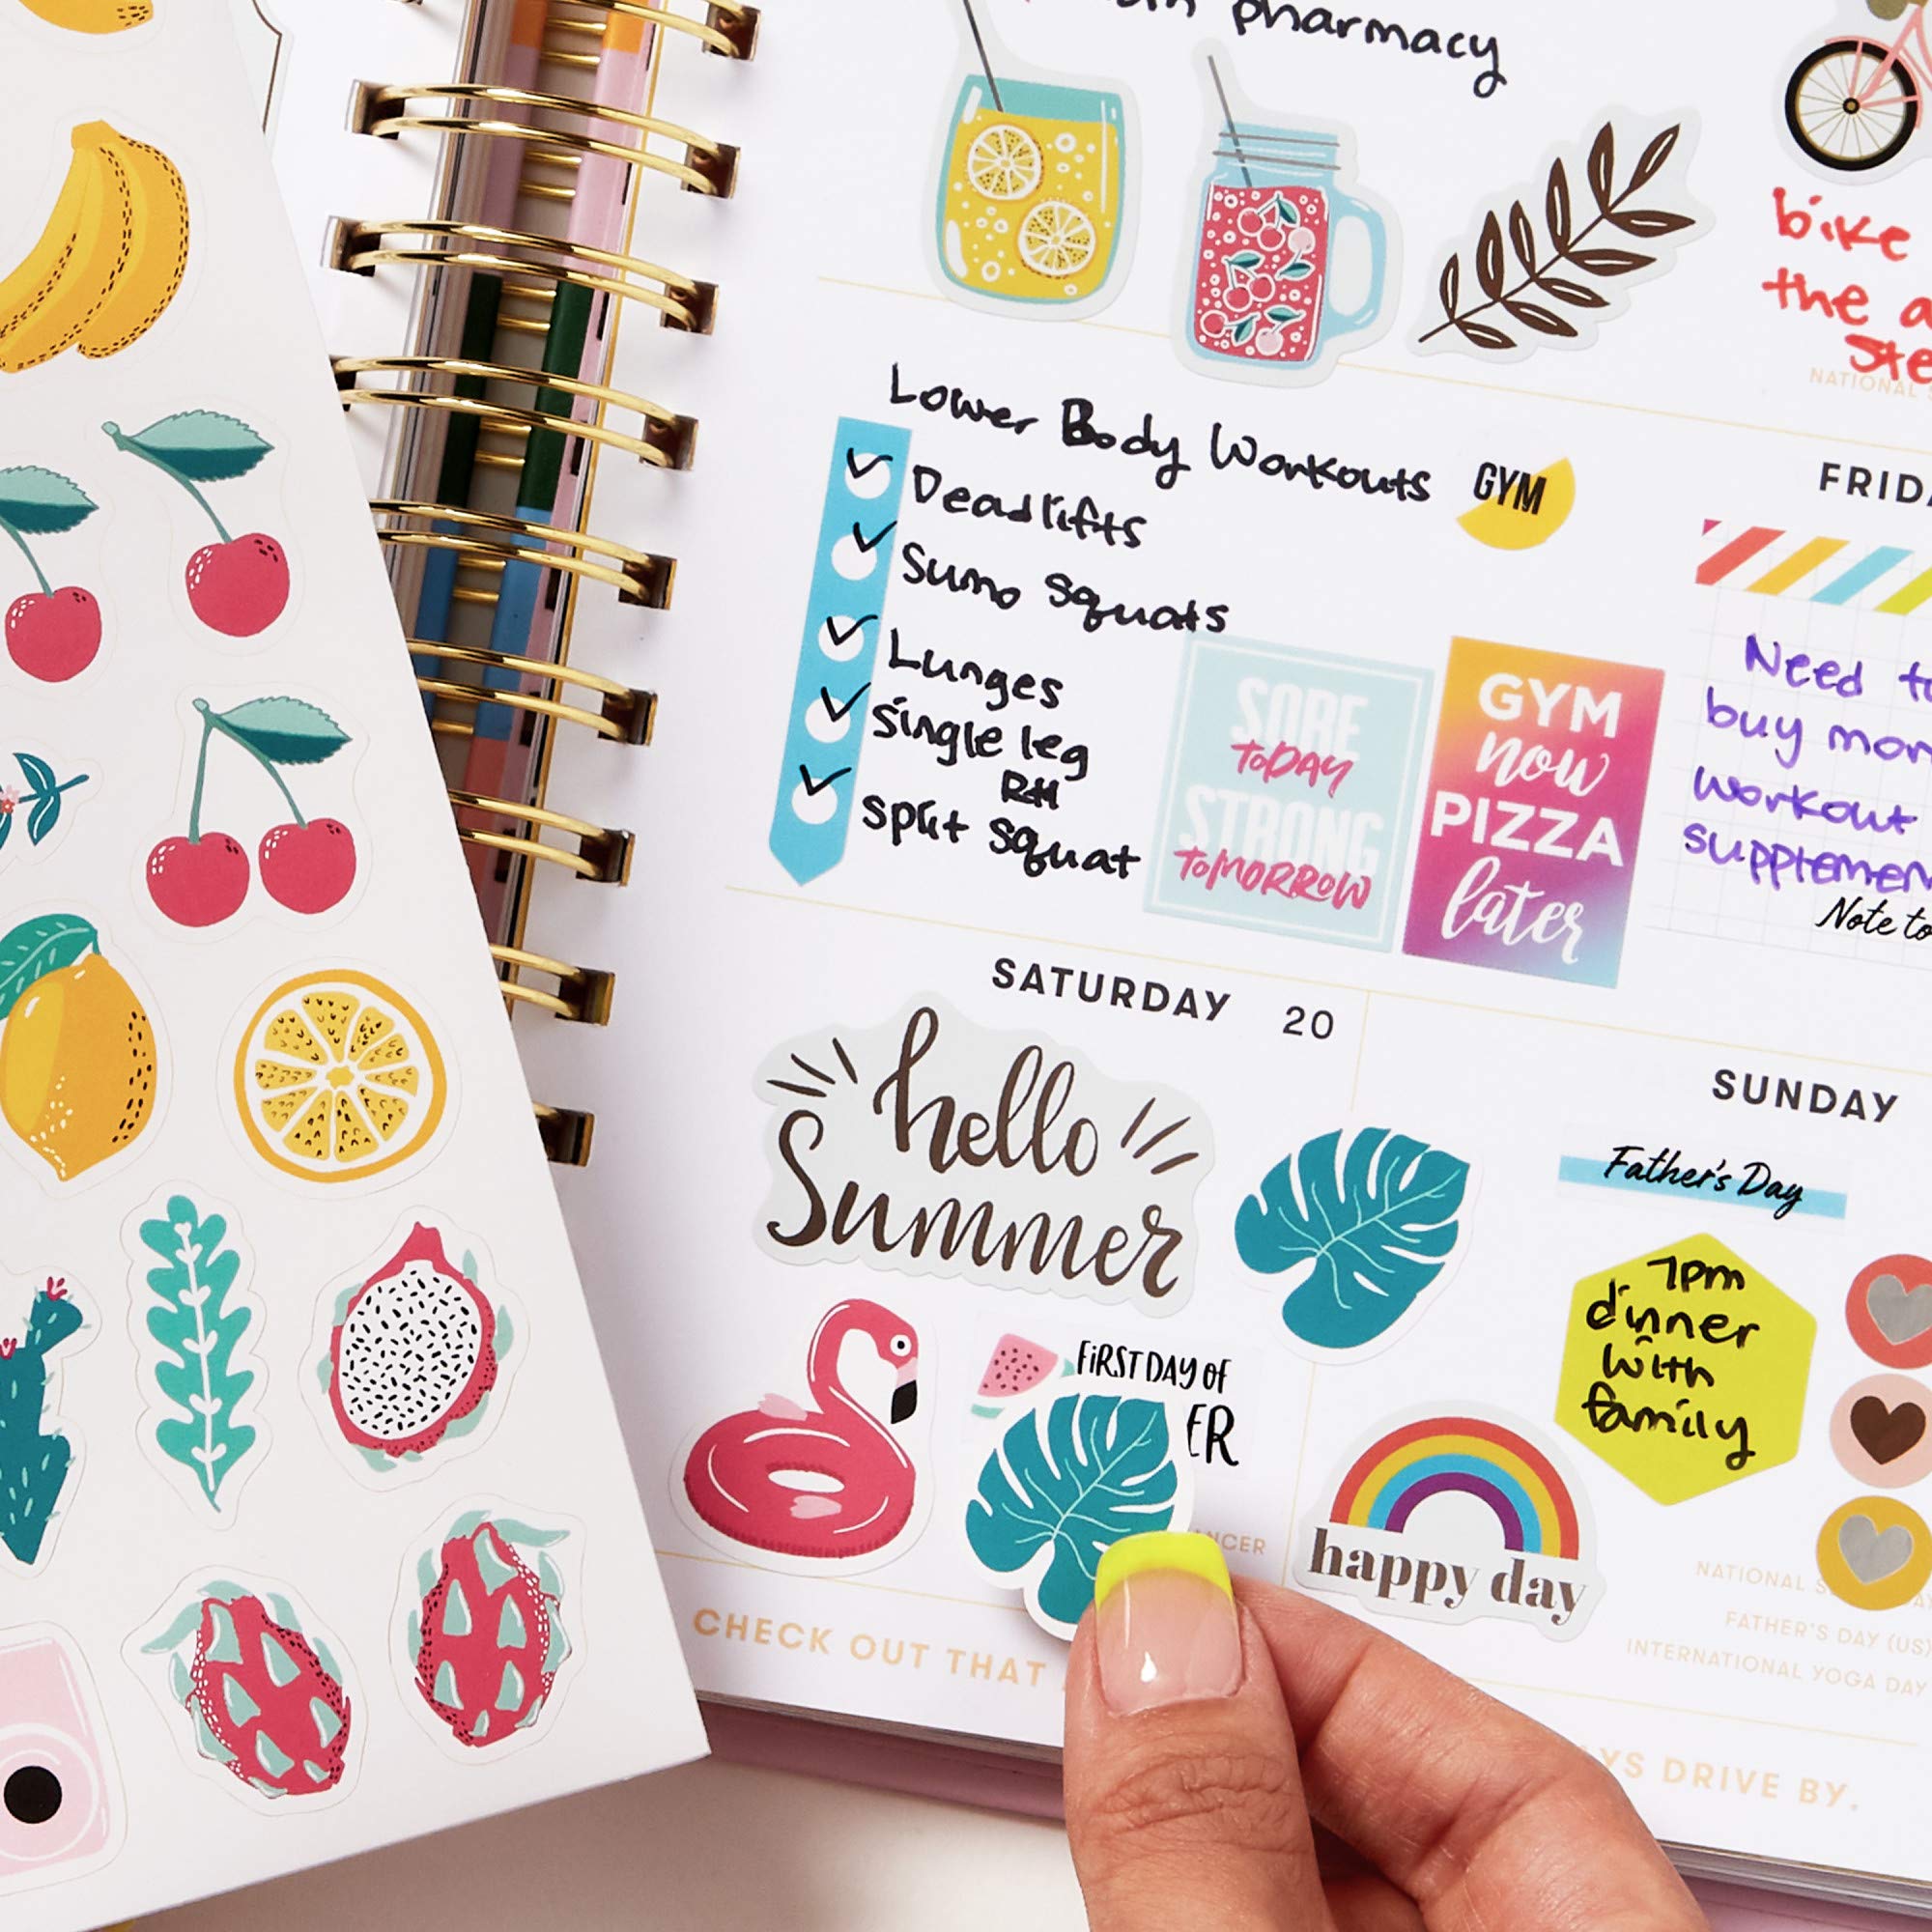 pharmacy
bike
the
NATIONAL
Lower Body Workouts
GYM
Deadlifts
Sumo Squats
Lunges
Single leg
RH
Split Squat
SORE
TODAY
STRONG
TOMORROW
GYM
now
PIZZA
later
Need
buy
workout
Note to
SATURDAY 20
hello
Summer
FIRST DAY OF
SUNDAY
Father's Day
7pm
dinner
with
family
happy day
NATIONAL
FATHER'S DAY (US)
INTERNATIONAL YOGA DAY
CHECK OUT THAT
DRIVE BY.